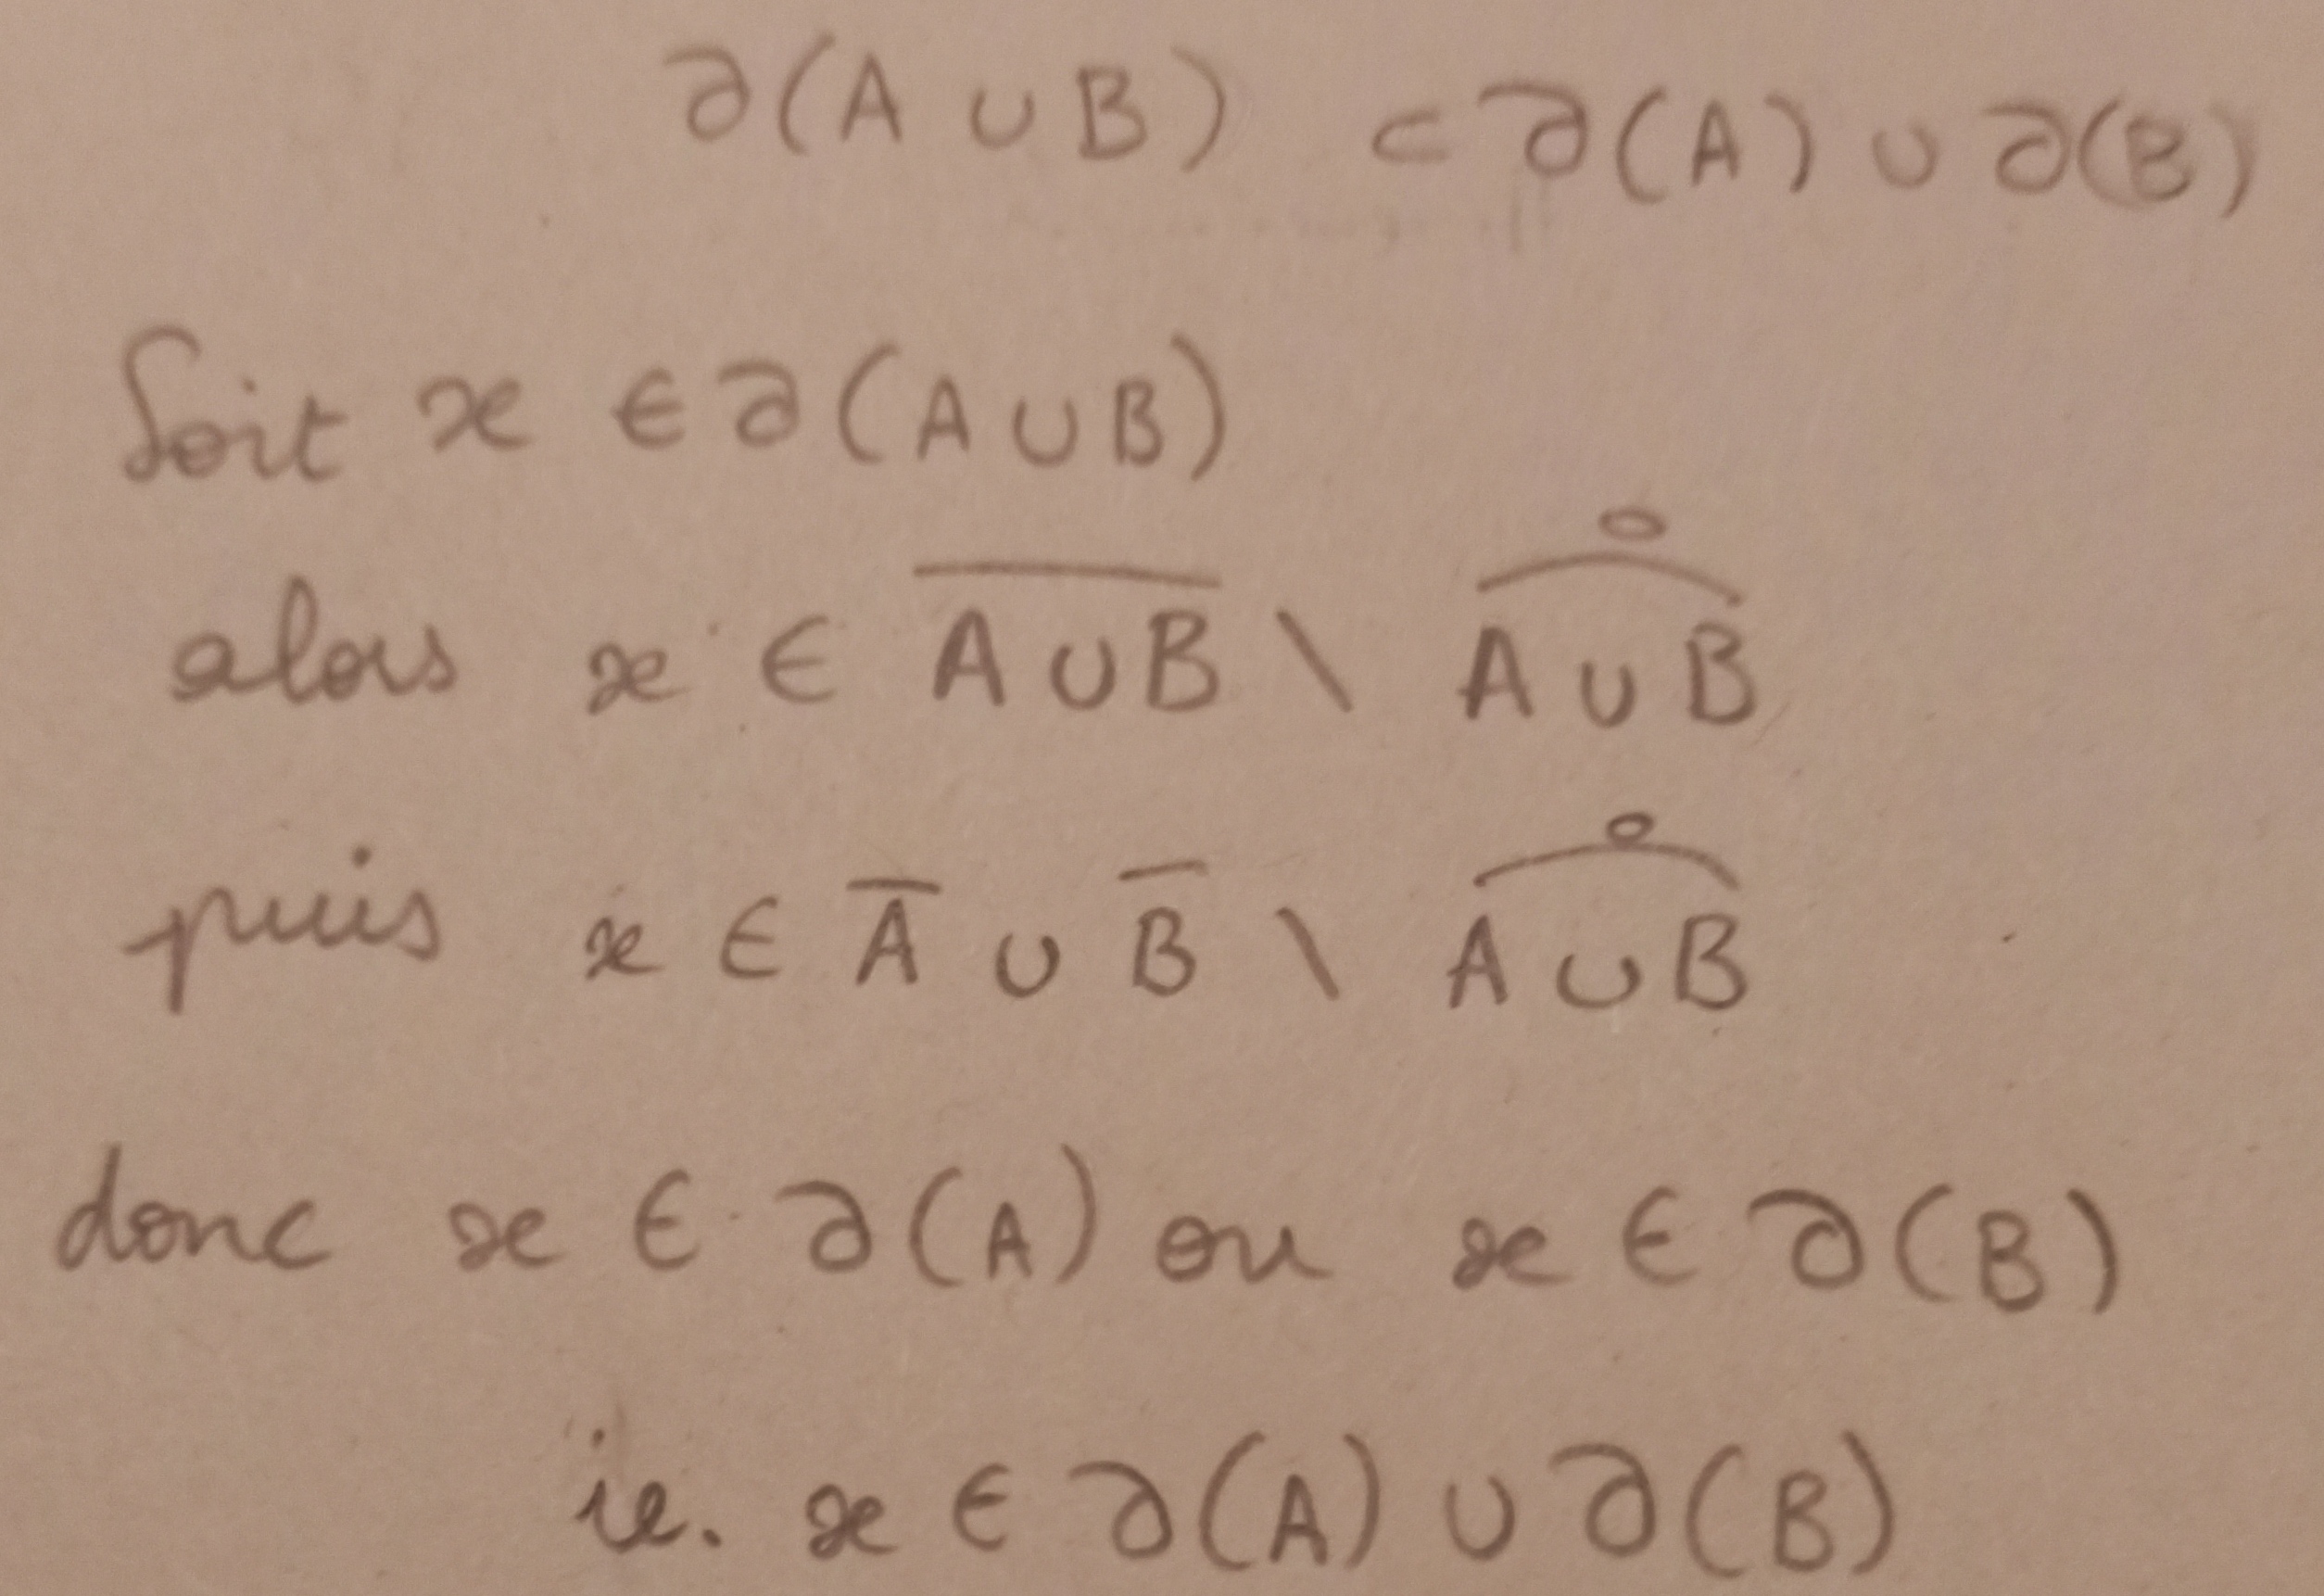 ∂(A ∪ B) ⊂ ∂(A) ∪ ∂(B)
Soit x ∈ ∂(A ∪ B)
alors x ∈ \overline{A ∪ B} \ \overset{\circ}{\overgroup{A ∪ B}}
puis x ∈ \overline{A} ∪ \overline{B} \ \overset{\circ}{\overgroup{A ∪ B}}
donc x ∈ ∂(A) ou x ∈ ∂(B)
ie. x ∈ ∂(A) ∪ ∂(B)